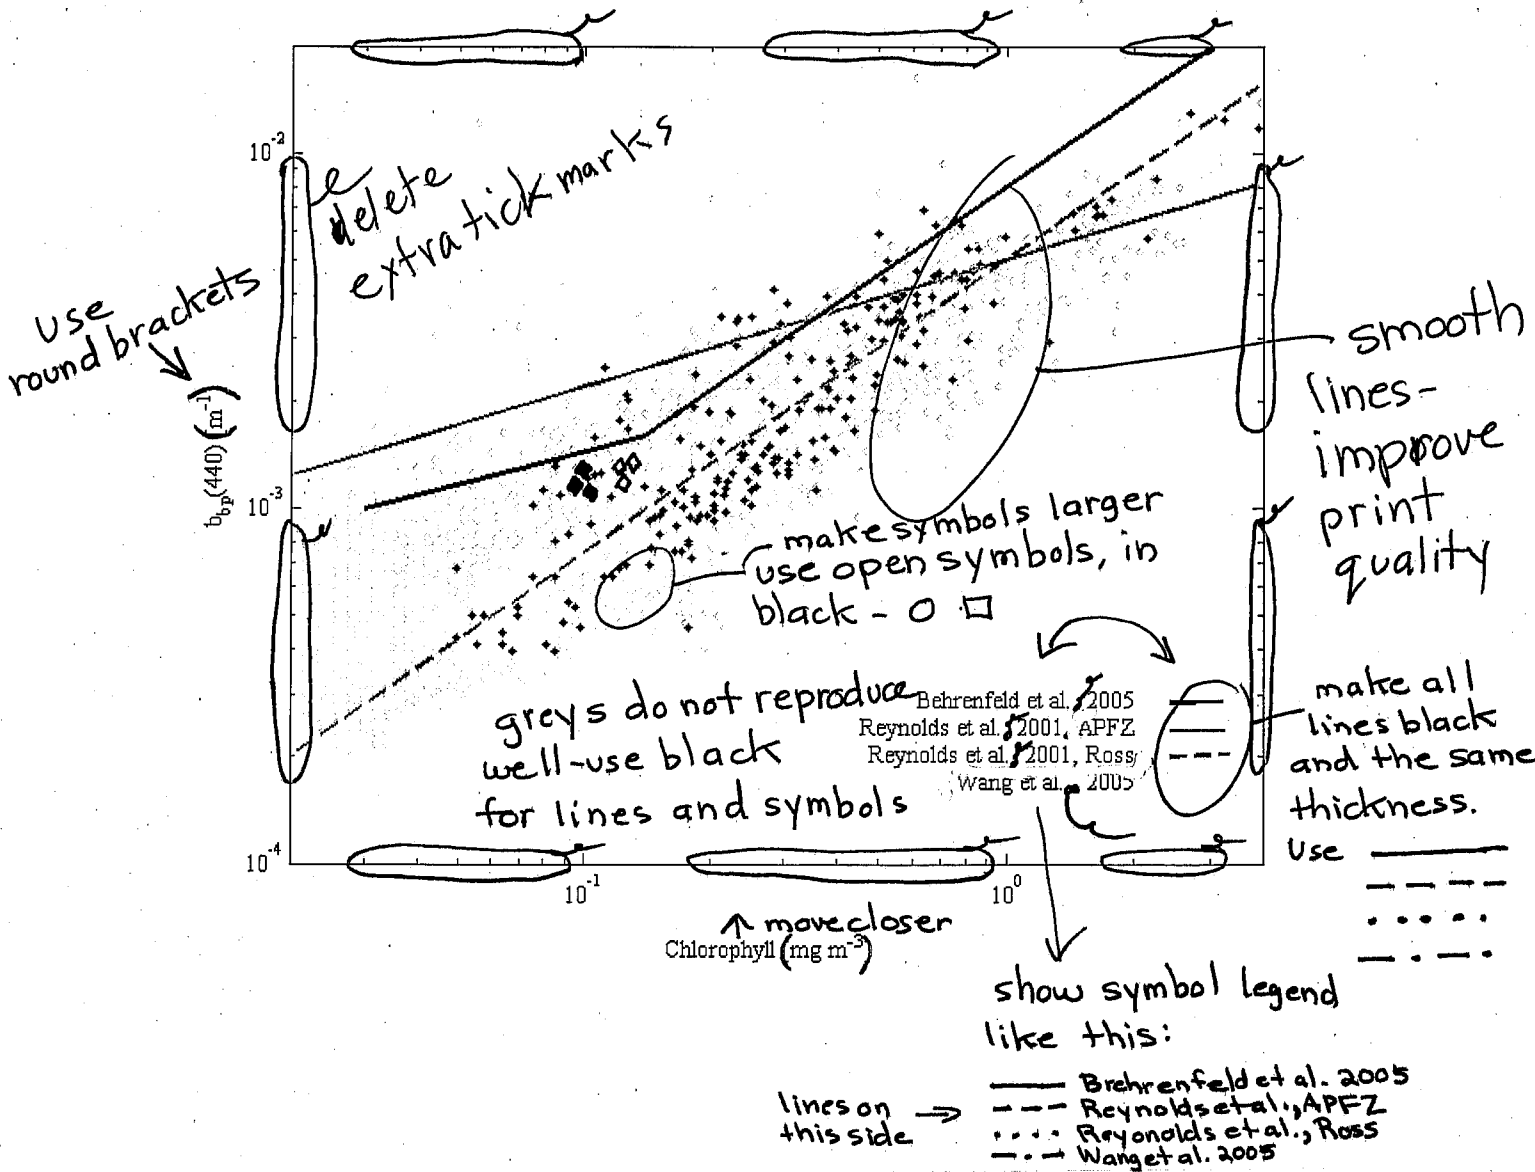 10-2
delete
extra tick marks
use
round brackets
bbp(440) (m-1)
10-3
smooth
lines-
improve
print
quality
make symbols larger
use open symbols, in
black - O □
greys do not reproduce
well-use black
for lines and symbols
Behrenfeld et al., 2005
Reynolds et al., 2001, APFZ
Reynolds et al., 2001, Ross
Wang et al. 2005
make all
lines black
and the same
thickness.
use
10-4
10-1
100
move closer
Chlorophyll (mg m-3)
show symbol legend
like this:
lines on
this side
Brehrenfeld et al. 2005
Reynolds et al., APFZ
Reyonolds et al., Ross
Wang et al. 2005